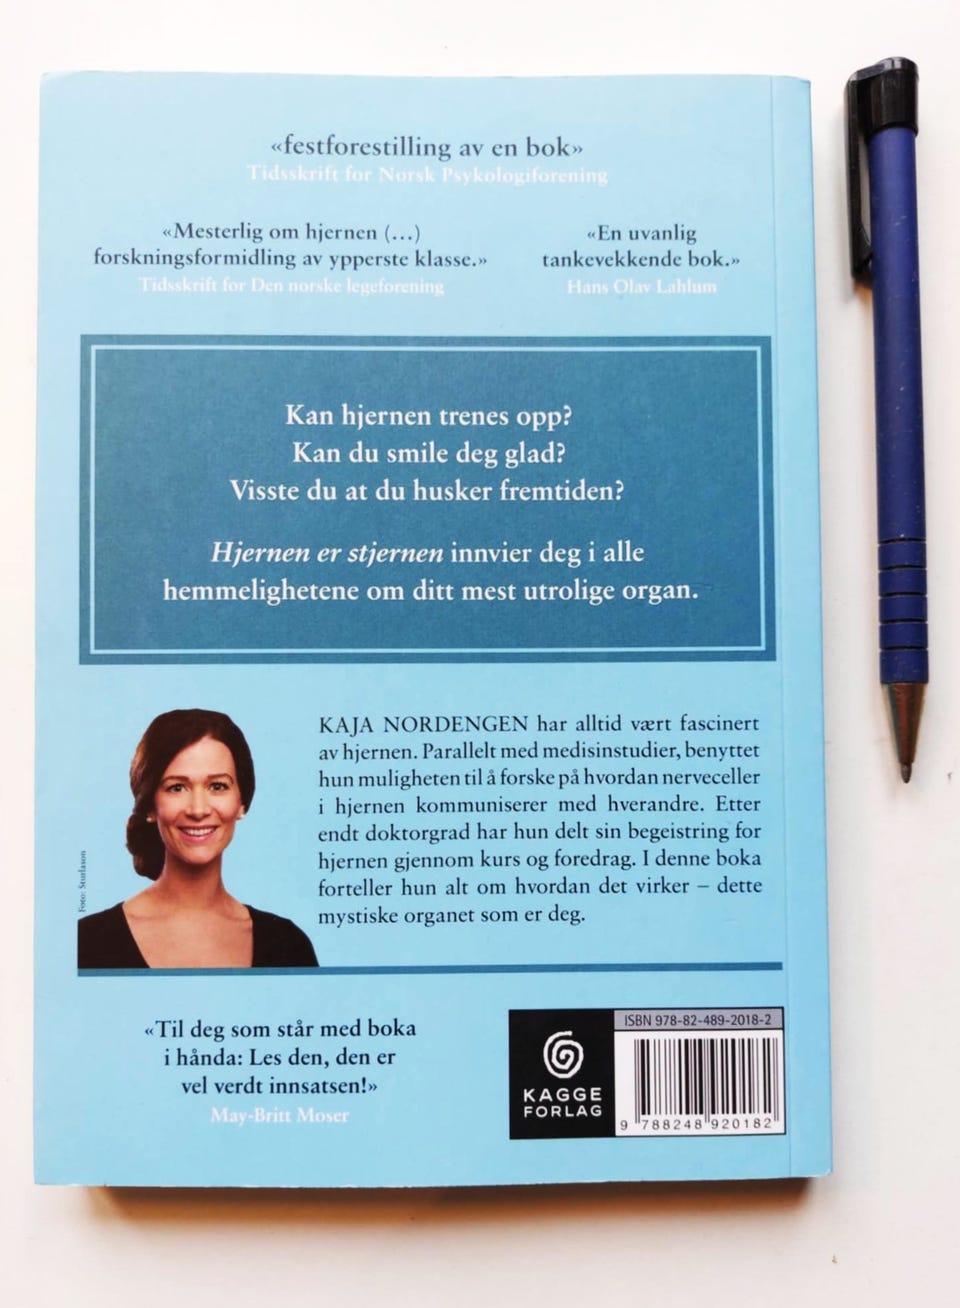 «festforestilling av en bok»
Tidsskrift for Norsk Psykologiforening
«Mesterlig om hjernen (...)
forskningsformidling av ypperste klasse.»
Tidsskrift for Den norske legeforening
«En uvanlig
tankevekkende bok.»
Hans Olav Lahlum
Kan hjernen trenes opp?
Kan du smile deg glad?
Visste du at du husker fremtiden?
Hjernen er stjernen innvier deg i alle
hemmelighetene om ditt mest utrolige organ.
KAJA NORDENGEN har alltid vært fascinert
av hjernen. Parallelt med medisinstudier, benyttet
hun muligheten til å forske på hvordan nerveceller
i hjernen kommuniserer med hverandre. Etter
endt doktorgrad har hun delt sin begeistring for
hjernen gjennom kurs og foredrag. I denne boka
forteller hun alt om hvordan det virker – dette
mystiske organet som er deg.
Foto: Sturlason
«Til deg som står med boka
i hånda: Les den, den er
vel verdt innsatsen!»
May-Britt Moser
KAGGE
FORLAG
ISBN 978-82-489-2018-2
9 788248 920182